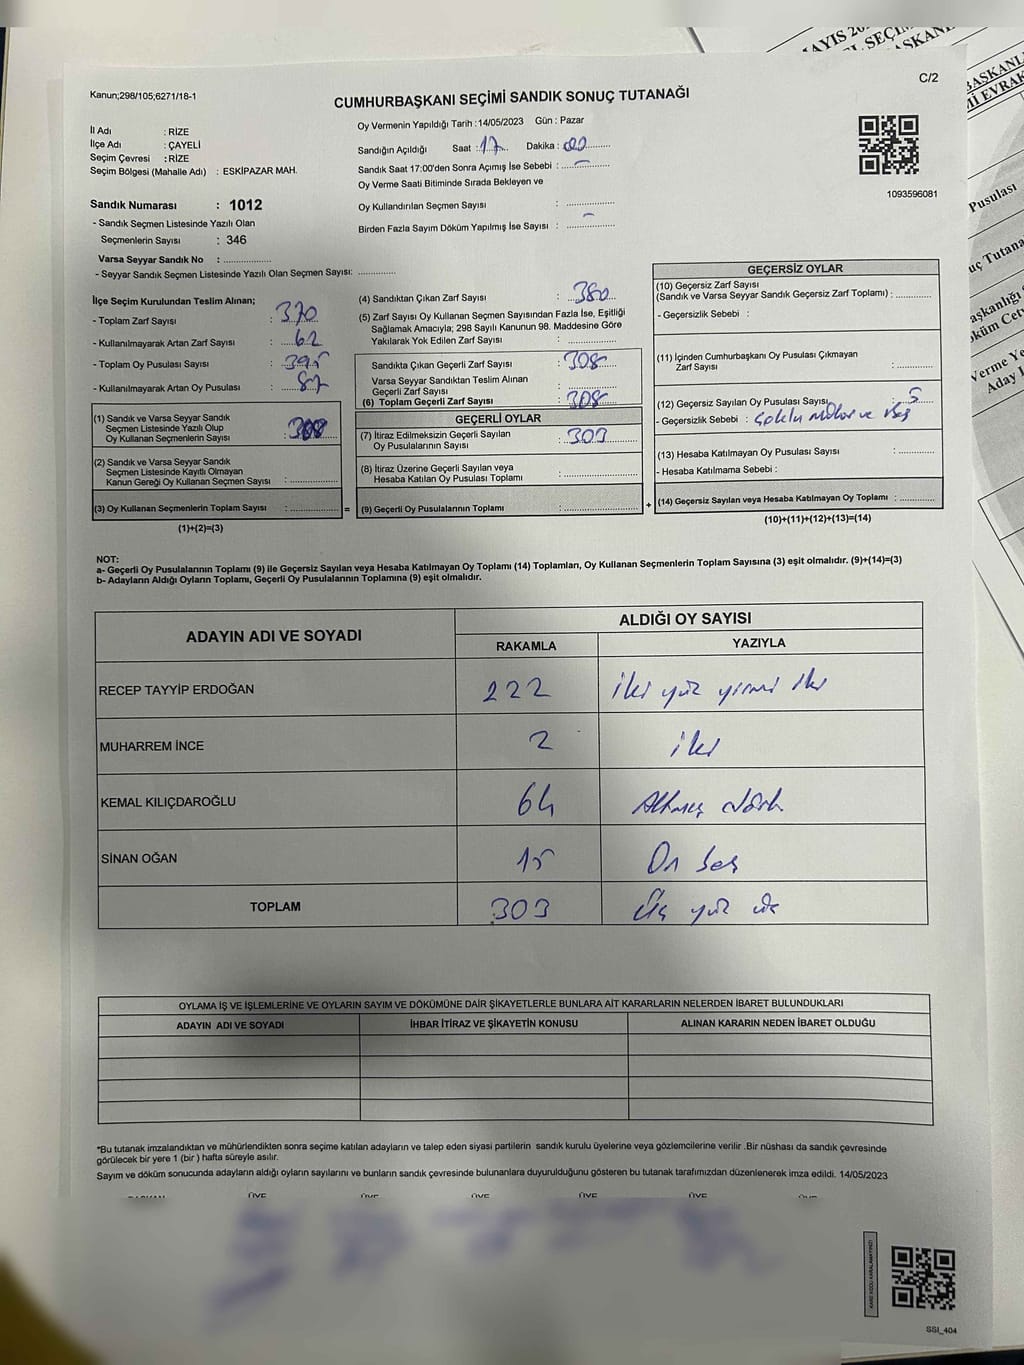 C/2
Kanun;298/105;6271/18-1
CUMHURBAŞKANI SEÇİMİ SANDIK SONUÇ TUTANAĞI
İl Adı : RİZE
İlçe Adı : ÇAYELİ
Seçim Çevresi : RİZE
Seçim Bölgesi (Mahalle Adı) : ESKİPAZAR MAH.
Oy Vermenin Yapıldığı Tarih :14/05/2023 Gün : Pazar
Sandığın Açıldığı Saat : 17 Dakika : 00
Sandık Saat 17:00'den Sonra Açımış İse Sebebi :
Oy Verme Saati Bitiminde Sırada Bekleyen ve
Oy Kullandırılan Seçmen Sayısı :
Birden Fazla Sayım Döküm Yapılmış İse Sayısı :
1093596081
Sandık Numarası : 1012
- Sandık Seçmen Listesinde Yazılı Olan
Seçmenlerin Sayısı : 346
Varsa Seyyar Sandık No :
- Seyyar Sandık Seçmen Listesinde Yazılı Olan Seçmen Sayısı:
İlçe Seçim Kurulundan Teslim Alınan;
- Toplam Zarf Sayısı : 370
- Kullanılmayarak Artan Zarf Sayısı : 62
- Toplam Oy Pusulası Sayısı : 395
- Kullanılmayarak Artan Oy Pusulası : 87
(1) Sandık ve Varsa Seyyar Sandık
Seçmen Listesinde Yazılı Olup
Oy Kullanan Seçmenlerin Sayısı : 308
(2) Sandık ve Varsa Seyyar Sandık
Seçmen Listesinde Kayıtlı Olmayan
Kanun Gereği Oy Kullanan Seçmen Sayısı :
(3) Oy Kullanan Seçmenlerin Toplam Sayısı : =
(1)+(2)=(3)
(4) Sandıktan Çıkan Zarf Sayısı : 380
(5) Zarf Sayısı Oy Kullanan Seçmen Sayısından Fazla İse, Eşitliği
Sağlamak Amacıyla; 298 Sayılı Kanunun 98. Maddesine Göre
Yakılarak Yok Edilen Zarf Sayısı :
Sandıkta Çıkan Geçerli Zarf Sayısı : 308
Varsa Seyyar Sandıktan Teslim Alınan
Geçerli Zarf Sayısı :
(6) Toplam Geçerli Zarf Sayısı : 308
GEÇERLİ OYLAR
(7) İtiraz Edilmeksizin Geçerli Sayılan
Oy Pusulalarının Sayısı : 303
(8) İtiraz Üzerine Geçerli Sayılan veya
Hesaba Katılan Oy Pusulası Toplamı :
(9) Geçerli Oy Pusulalarının Toplamı : +
GEÇERSİZ OYLAR
(10) Geçersiz Zarf Sayısı
(Sandık ve Varsa Seyyar Sandık Geçersiz Zarf Toplamı) :
- Geçersizlik Sebebi :
(11) İçinden Cumhurbaşkanı Oy Pusulası Çıkmayan
Zarf Sayısı :
(12) Geçersiz Sayılan Oy Pusulası Sayısı : 5
- Geçersizlik Sebebi : Çoklu mühür ve
(13) Hesaba Katılmayan Oy Pusulası Sayısı :
- Hesaba Katılmama Sebebi :
(14) Geçersiz Sayılan veya Hesaba Katılmayan Oy Toplamı :
(10)+(11)+(12)+(13)=(14)
NOT:
a- Geçerli Oy Pusulalarının Toplamı (9) ile Geçersiz Sayılan veya Hesaba Katılmayan Oy Toplamı (14) Toplamları, Oy Kullanan Seçmenlerin Toplam Sayısına (3) eşit olmalıdır. (9)+(14)=(3)
b- Adayların Aldığı Oyların Toplamı, Geçerli Oy Pusulalarının Toplamına (9) eşit olmalıdır.
ADAYIN ADI VE SOYADI
ALDIĞI OY SAYISI
RAKAMLA YAZIYLA
RECEP TAYYİP ERDOĞAN 222 iki yüz yirmi iki
MUHARREM İNCE 2 iki
KEMAL KILIÇDAROĞLU 64 Altmış dört
SİNAN OĞAN 15 On beş
TOPLAM 303 Üç yüz üç
OYLAMA İŞ VE İŞLEMLERİNE VE OYLARIN SAYIM VE DÖKÜMÜNE DAİR ŞİKAYETLERLE BUNLARA AİT KARARLARIN NELERDEN İBARET BULUNDUKLARI
ADAYIN ADI VE SOYADI İHBAR İTİRAZ VE ŞİKAYETİN KONUSU ALINAN KARARIN NEDEN İBARET OLDUĞU
*Bu tutanak imzalandıktan ve mühürlendikten sonra seçime katılan adayların ve talep eden siyasi partilerin sandık kurulu üyelerine veya gözlemcilerine verilir .Bir nüshası da sandık çevresinde
görülecek bir yere 1 (bir ) hafta süreyle asılır.
Sayım ve döküm sonucunda adayların aldığı oyların sayılarını ve bunların sandık çevresinde bulunanlara duyurulduğunu gösteren bu tutanak tarafımızdan düzenlenerek imza edildi. 14/05/2023
ÜYE ÜYE ÜYE ÜYE ÜYE
KARE KODU KARALAMAYINIZ!
SSI_404
Pusulası